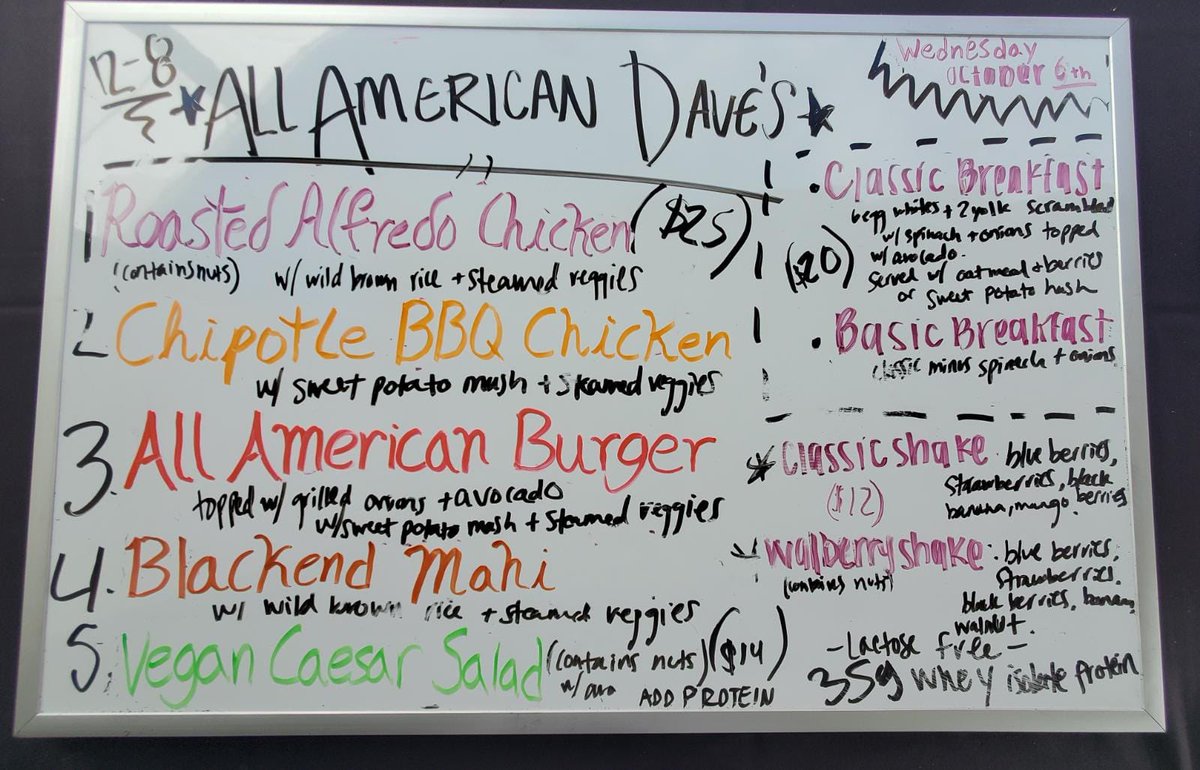 12-8
ALL AMERICAN DAVE'S
Wednesday
October 6th
1 Roasted Alfredo Chicken ($25)
(contains nuts) w/ wild brown rice + steamed veggies
2 Chipotle BBQ Chicken
w/ sweet potato mash + steamed veggies
3. All American Burger
topped w/ grilled onions + avocado
w/ sweet potato mash + steamed veggies
4. Blackend Mahi
w/ wild brown rice + steamed veggies
5. Vegan Caesar Salad (contains nuts) ($14)
w/ avo ADD PROTEIN
• Classic Breakfast
6 egg whites + 2 yolk scrambled
w/ spinach + onions topped
($20) w/ avocado.
served w/ oatmeal + berries
or sweet potato hash
• Basic Breakfast
classic minus spinach + onions
Classic shake blue berries,
($12) strawberries, black berries
banana, mango.
walberry shake: blue berries,
(contains nuts) strawberries.
black berries, banana,
walnut.
- Lactose free -
35g whey isolate protein